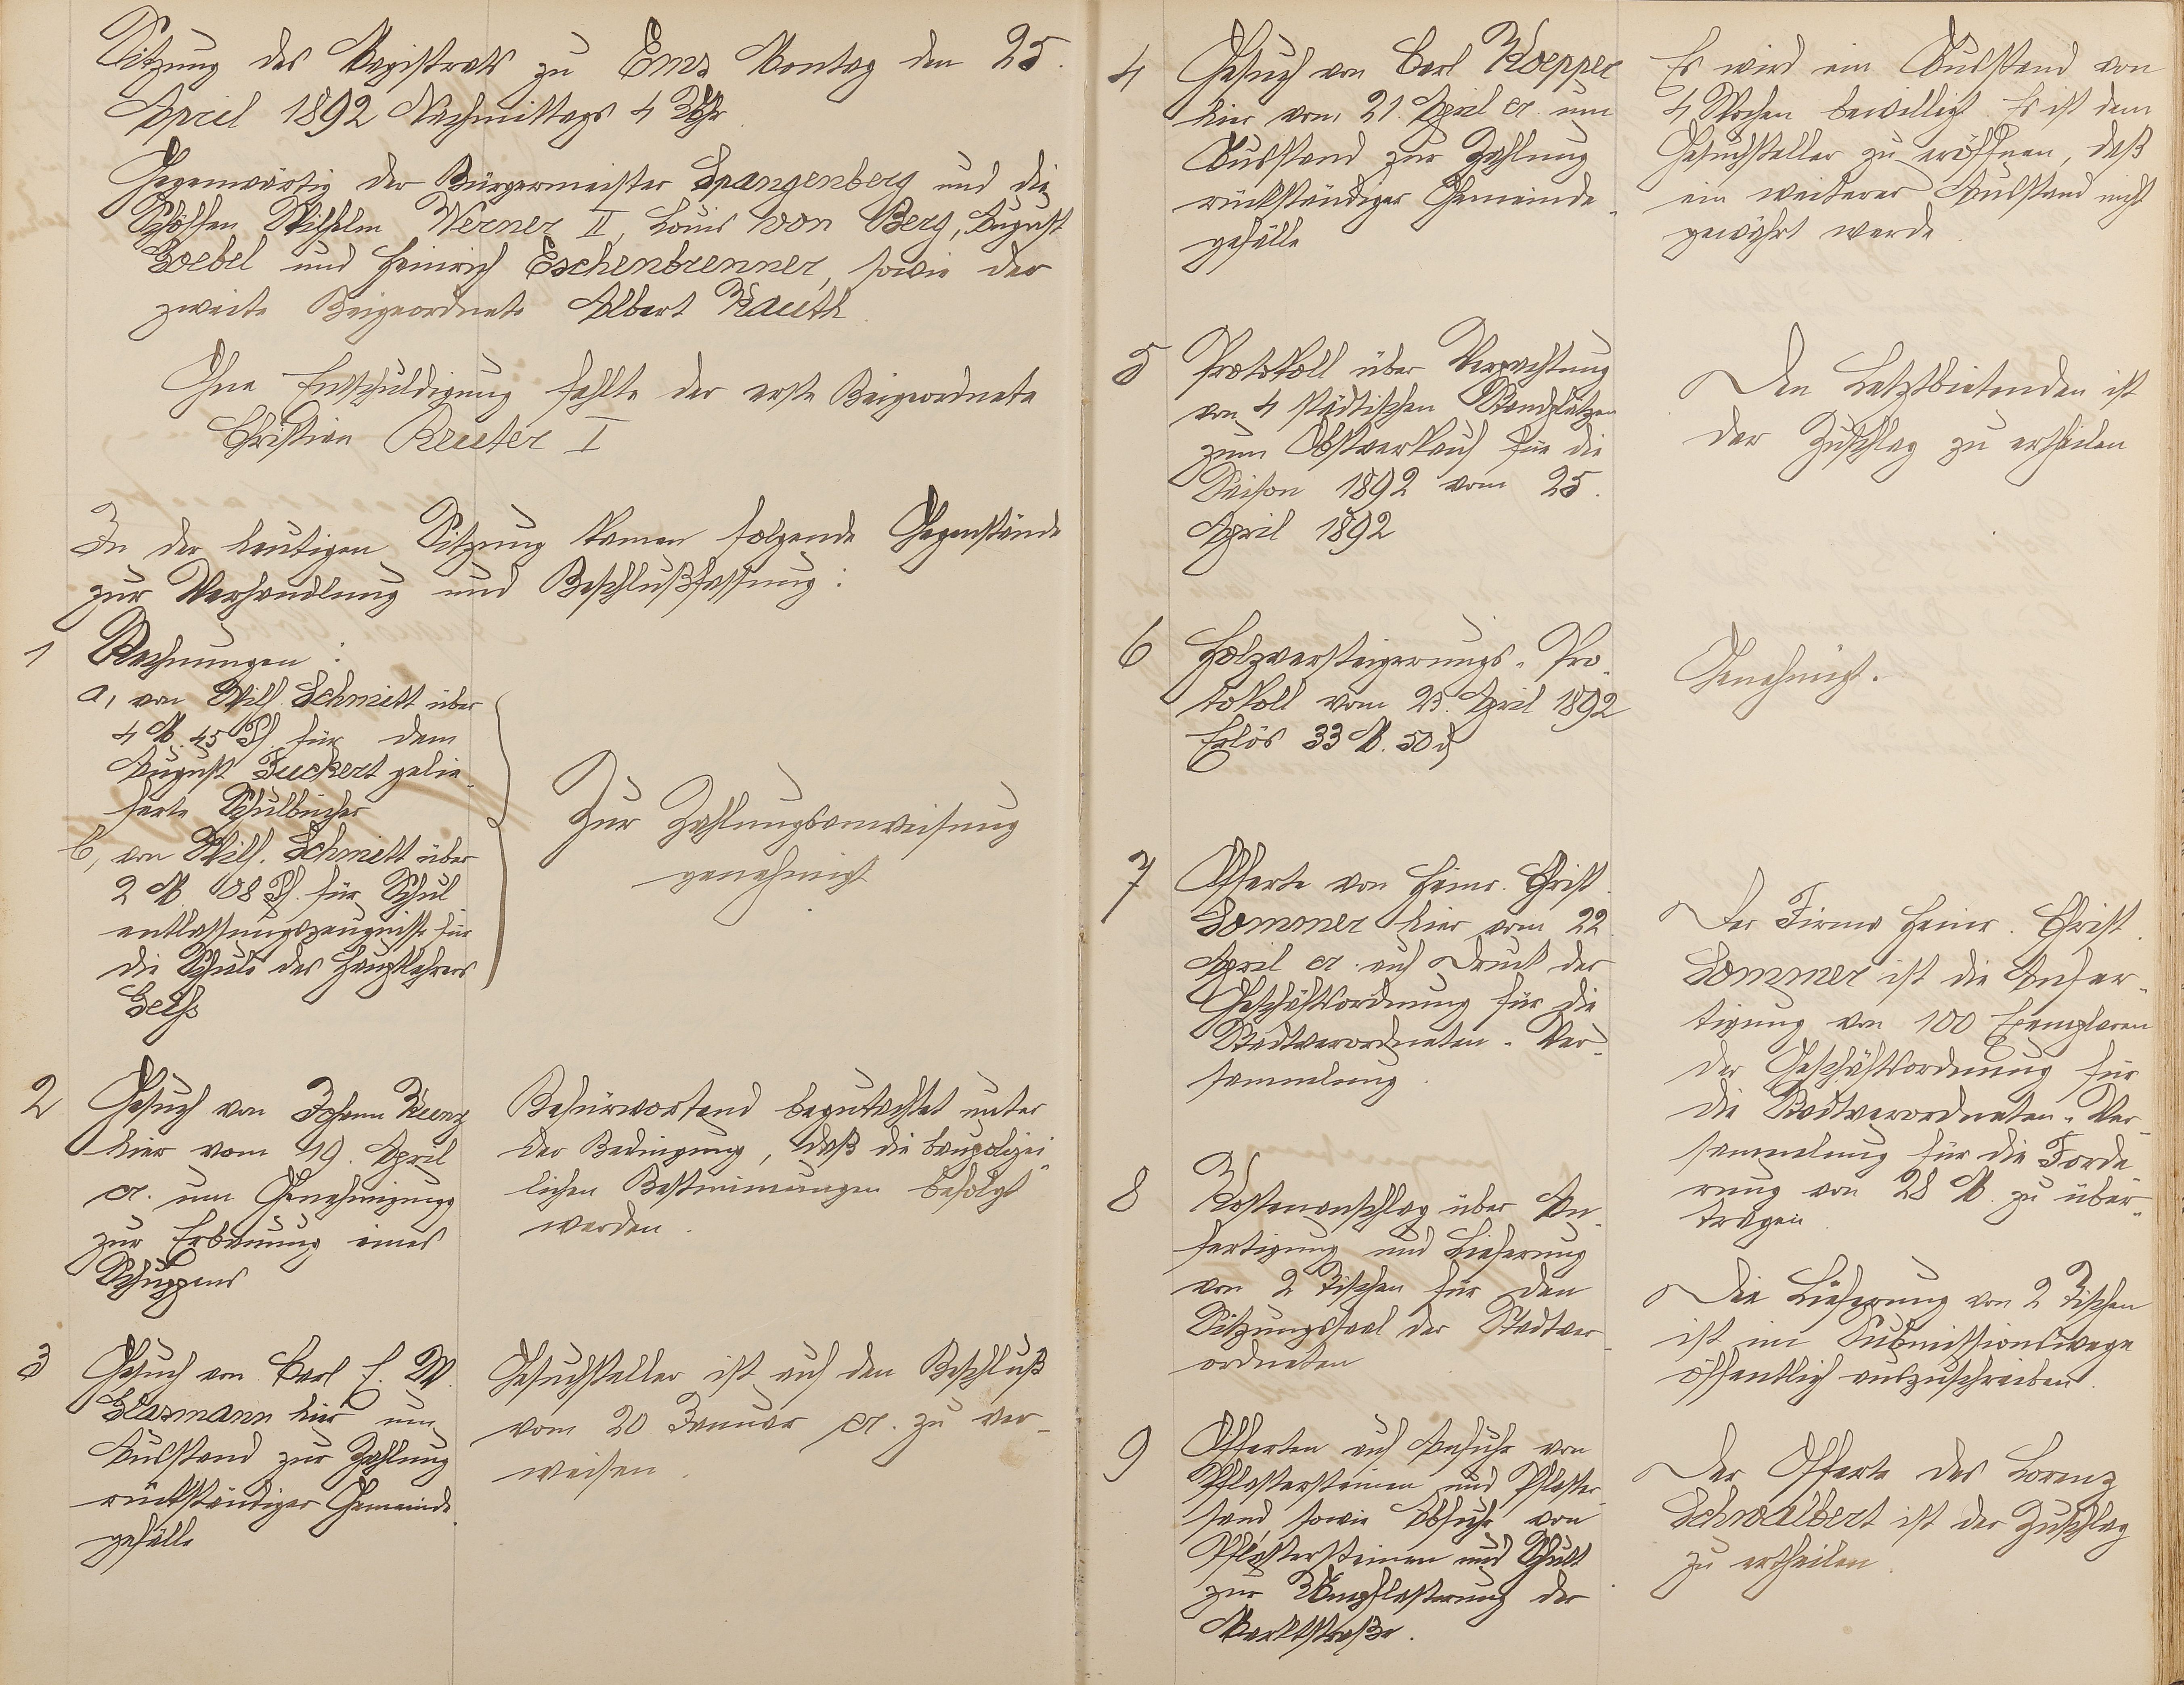 Sitzung des Magistrats zu Ems Montag den 25.
April 1892 Nachmittags 4 Uhr
Gegenwärtig der Bürgermeister Spangenberg und die
Schöffen Wilhelm Werner II, Louis von Berg, August
Goebel und Heinrich Eschenbrenner, sowie der
zweite Beigeordnete Albert Kauth.
Ohne Entschuldigung fehlte der erste Beigeordnete
Christian Reuter I
In der heutigen Sitzung kamen folgende Gegenstände
zur Verhandlung und Beschlußfassung:
1 Rechnungen:
a, von Wilh. Schmitt über
4 M. 45 Pf. für dem
August Tuckert gelie-
ferte Schulbücher
b, von Wilh. Schmitt über
2 M. 08 Pf. für Schul
entlassungszeugnisse für
die Schule des Hauptlehrers
Zur Zahlungsanweisung
genehmigt
2 Gesuch von Johann Kunz
hier vom 19. April
cr. um Genehmigung
zur Erbauung eines
Schuppens
Befürwortend begutachtet unter
der Bedingung, daß die baupolizei-
lichen Bestimmungen befolgt
werden.
3 Gesuch von Carl F. W.
Glasmann hier um
Ausstand zur Zahlung
rückständiger Gemeinde-
gefälle
Gesuchsteller ist auf den Beschluß
vom 20 Januar cr. zu ver-
weisen.
4 Gesuch von Carl Koepper
hier vom 21. April cr. um
Ausstand zur Zahlung
rückständiger Gemeinde-
gefälle
Es wird ein Ausstand von
4 Wochen bewilligt. Es ist dem
Gesuchsteller zu eröffnen, daß
ein weiterer Ausstand nicht
gewährt werde.
5 Protokoll über Verpachtung
von 4 städtischen Standplätzen
zum Obstverkauf für die
Saison 1892 vom 25.
April 1892
Den Letztbietenden ist
der Zuschlag zu ertheilen
6 Holzversteigerungs-Pro-
tokoll vom 23. April 1892
Erlös 33 M. 50 ₰
Genehmigt.
7 Offerte von Heinr. Christ.
Sommer hier vom 22.
April cr. auf Druck der
Geschäftsordnung für die
Stadtverordneten-Ver-
sammlung.
Der Firma Heinr. Christ.
Sommer ist die Anfer-
tigung von 100 Exemplaren
der Geschäftsordnung für
die Stadtverordneten-Ver-
sammlung für die Forde
rung von 28 M. zu über-
tragen.
8 Kostenanschlag über An-
fertigung und Lieferung
von 2 Tischen für den
Sitzungssaal der Stadtver-
ordneten
Die Lieferung von 2 Tischen
ist im Submissionswege
öffentlich auszuschreiben.
9 Offerten auf Anfuhr von
Pflastersteinen und Pflaster-
sand sowie Abfuhr von
Pflastersteinen und Schutt
zur Umpflasterung der
Marktstraße.
Der Offerte des Lorenz
Schwalbert ist der Zuschlag
zu ertheilen.